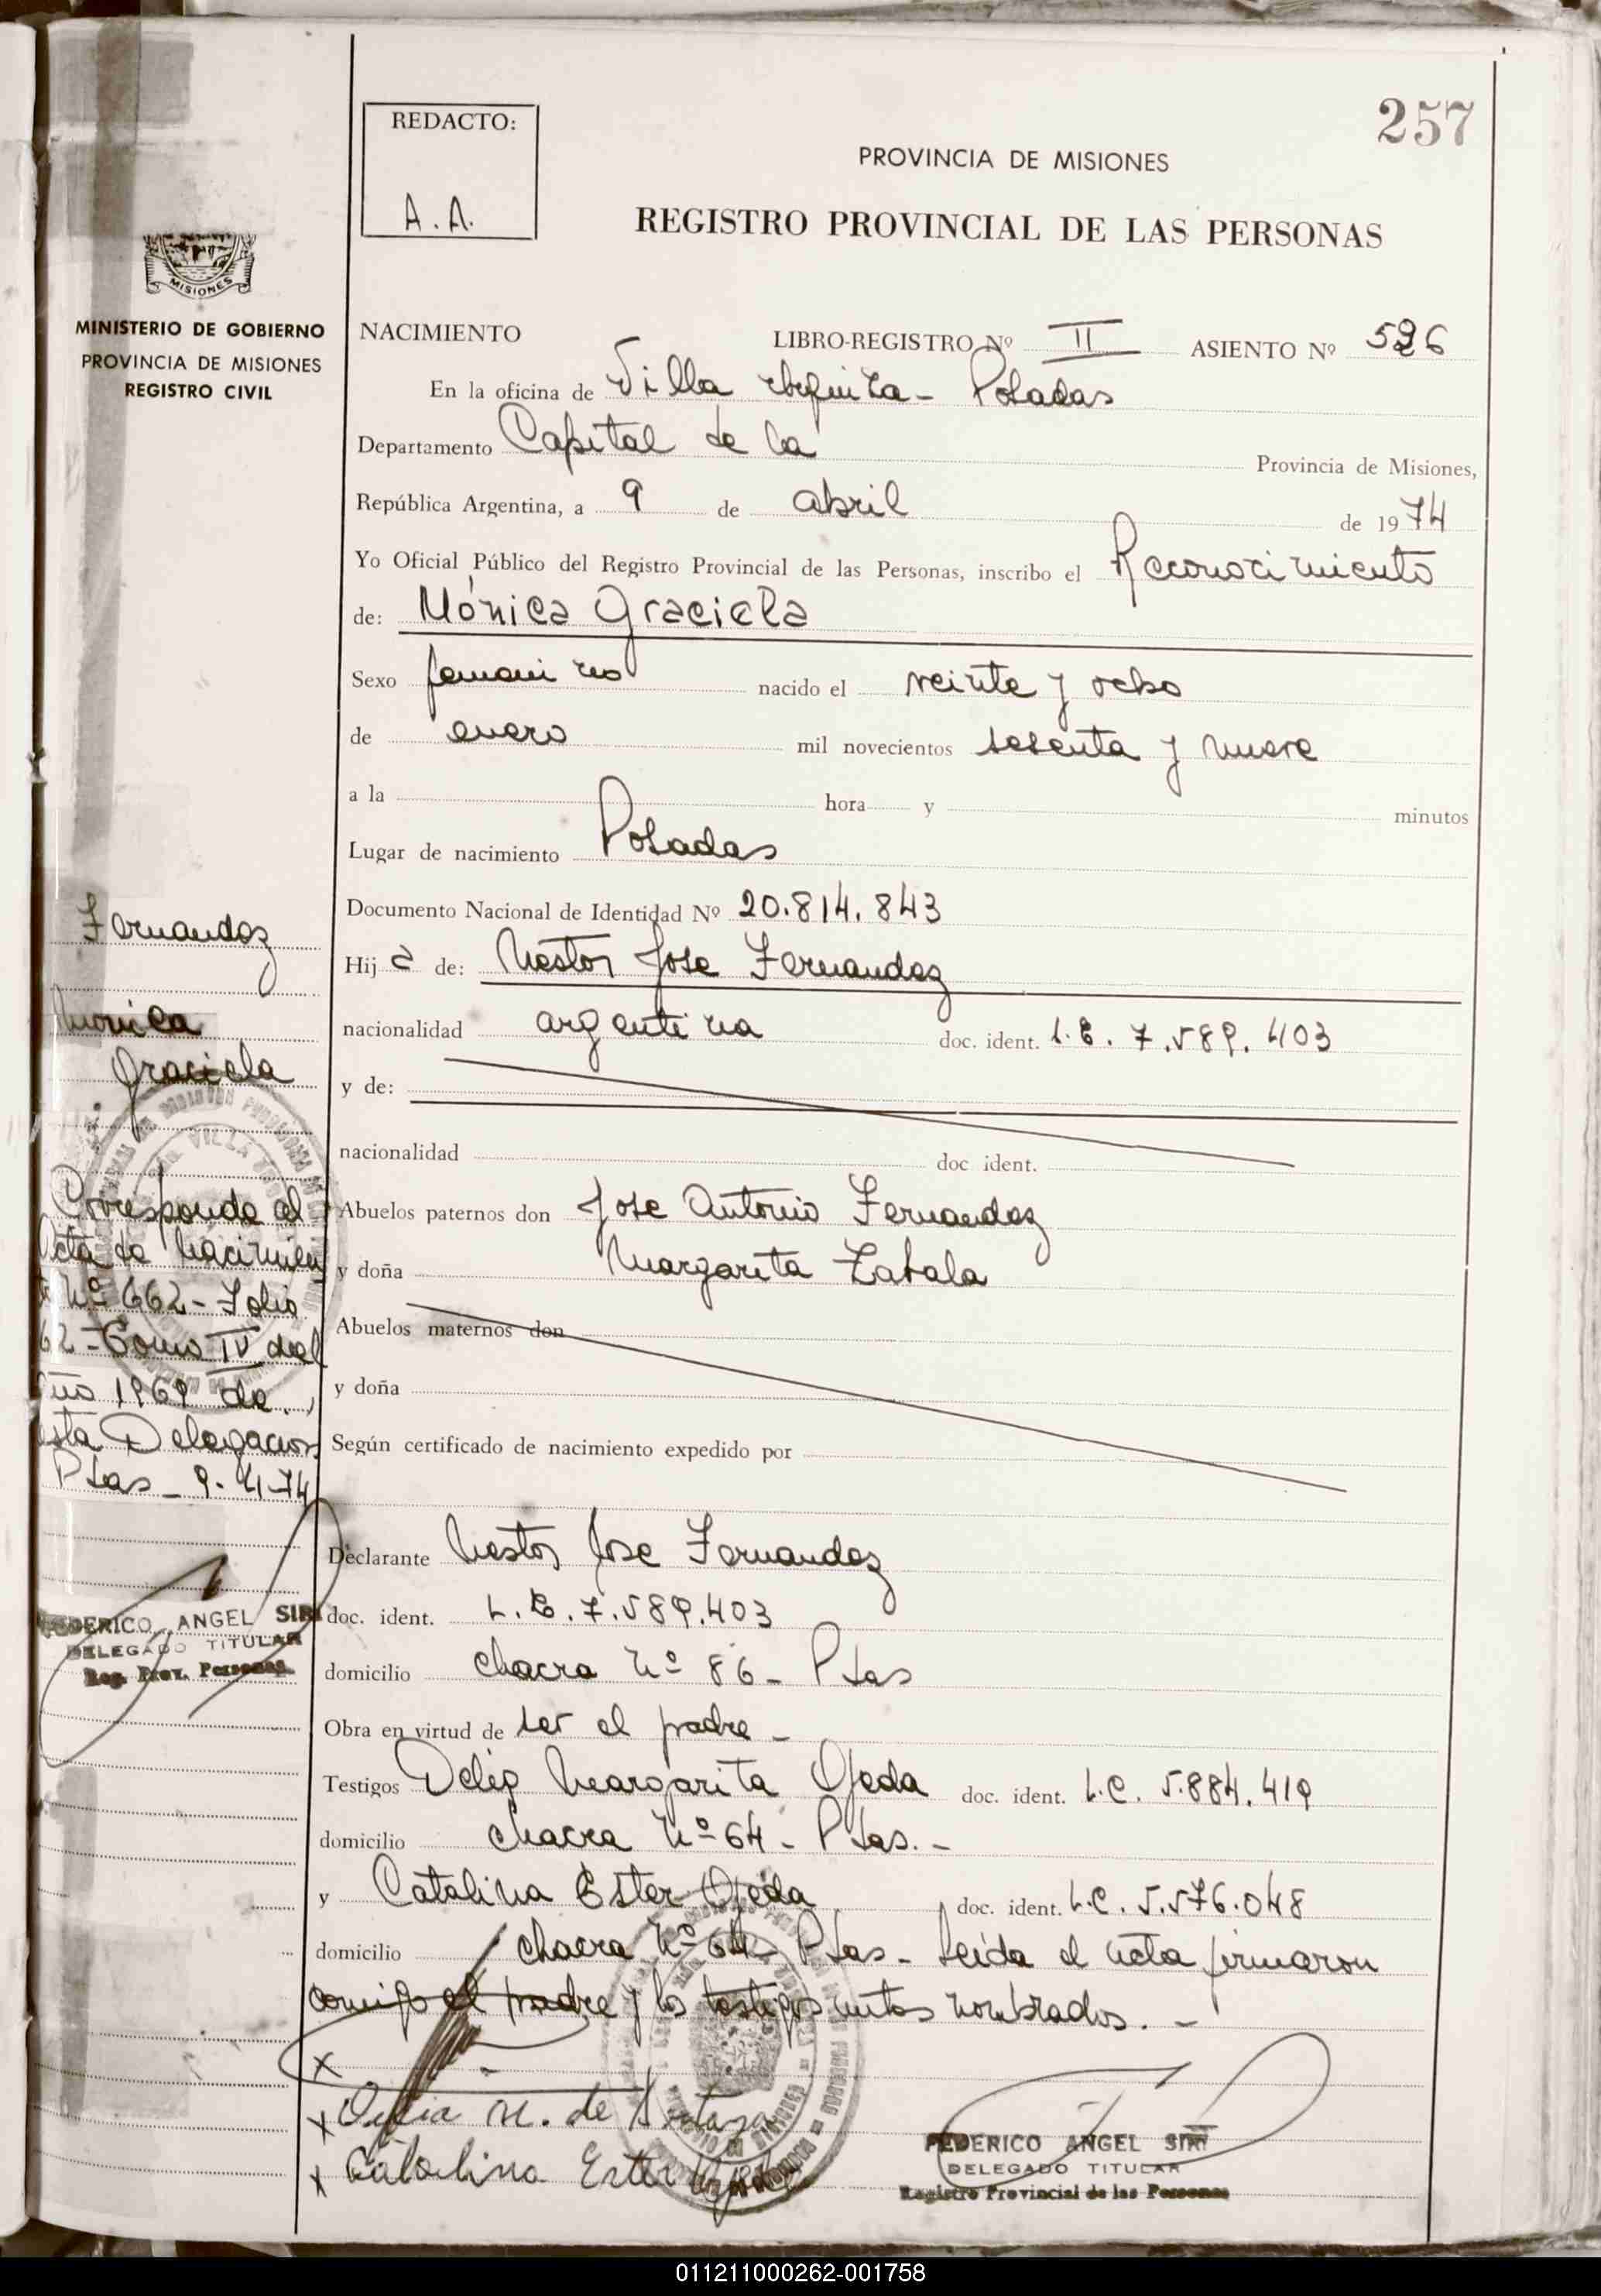 257
REDACTO:
A. A.
PROVINCIA DE MISIONES
REGISTRO PROVINCIAL DE LAS PERSONAS
MISIONES
MINISTERIO DE GOBIERNO
PROVINCIA DE MISIONES
REGISTRO CIVIL
NACIMIENTO LIBRO-REGISTRO Nº II ASIENTO Nº 526
En la oficina de Villa Urquiza - Posadas
Departamento Capital de la Provincia de Misiones,
República Argentina, a 9 de abril de 1974
Yo Oficial Público del Registro Provincial de las Personas, inscribo el Reconocimiento
de: Mónica Graciela
Sexo femenino nacido el veinte y ocho
de enero mil novecientos sesenta y nueve
a la hora y minutos
Lugar de nacimiento Posadas
Documento Nacional de Identidad Nº 20.814.843
Hij a de: Nestor Jose Fernandez
nacionalidad argentina doc. ident. L.E. 7.589.403
y de:
nacionalidad doc ident.
Abuelos paternos don Jose Antonio Fernandez
y doña Margarita Zabala
Abuelos maternos don
y doña
Según certificado de nacimiento expedido por
Declarante Nestor Jose Fernandez
doc. ident. L.E. 7.589.403
domicilio chacra Nº 86 - Pdas
Obra en virtud de ser el padre -
Testigos Margarita Ojeda doc. ident. L.C. 5.884.419
domicilio chacra Nº 64 - Pdas. -
y Catalina Ester Ojeda doc. ident. L.C. 5.576.048
domicilio chacra Nº 64 - Pdas - Leida el acta firmaron
conmigo el padre y los testigos antes nombrados. -
x
x M. de
x Catalina Ester
FEDERICO ANGEL SIRI
DELEGADO TITULAR
Registro Provincial de las Personas
Fernandez
Monica
Graciela
Corresponde al
Acta de Nacimien
to Nº 662 - Folio
62 - Tomo IV del
Año 1969 de
esta Delegacion
Pdas - 9-4-74
FEDERICO ANGEL SIRI
DELEGADO TITULAR
Reg. Prov. Personas
011211000262-001758